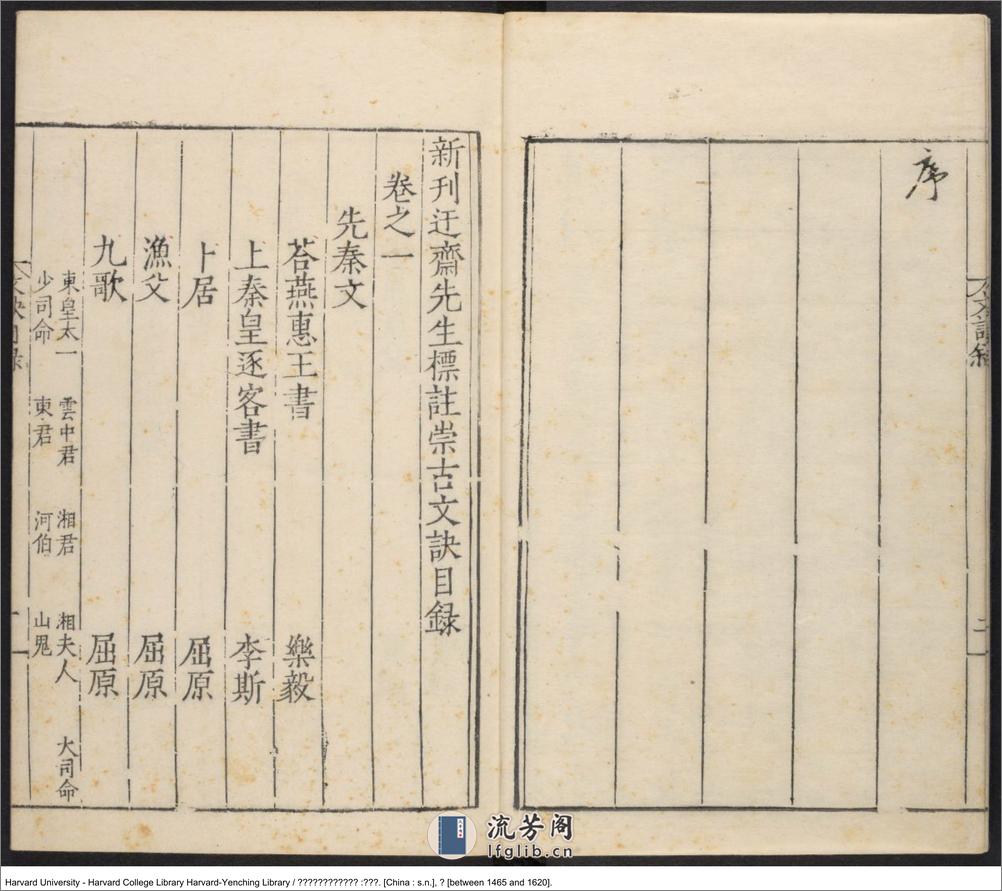 序
新刊迂齋先生標註崇古文訣目録
卷之一
先秦文
荅燕惠王書 樂毅
上秦皇逐客書 李斯
卜居 屈原
漁父 屈原
九歌 屈原
東皇太一 雲中君 湘君 湘夫人 大司命
少司命 東君 河伯 山鬼
流芳阁
lfglib.cn
Harvard University - Harvard College Library Harvard-Yenching Library / ???????????? :???. [China : s.n.], ? [between 1465 and 1620].